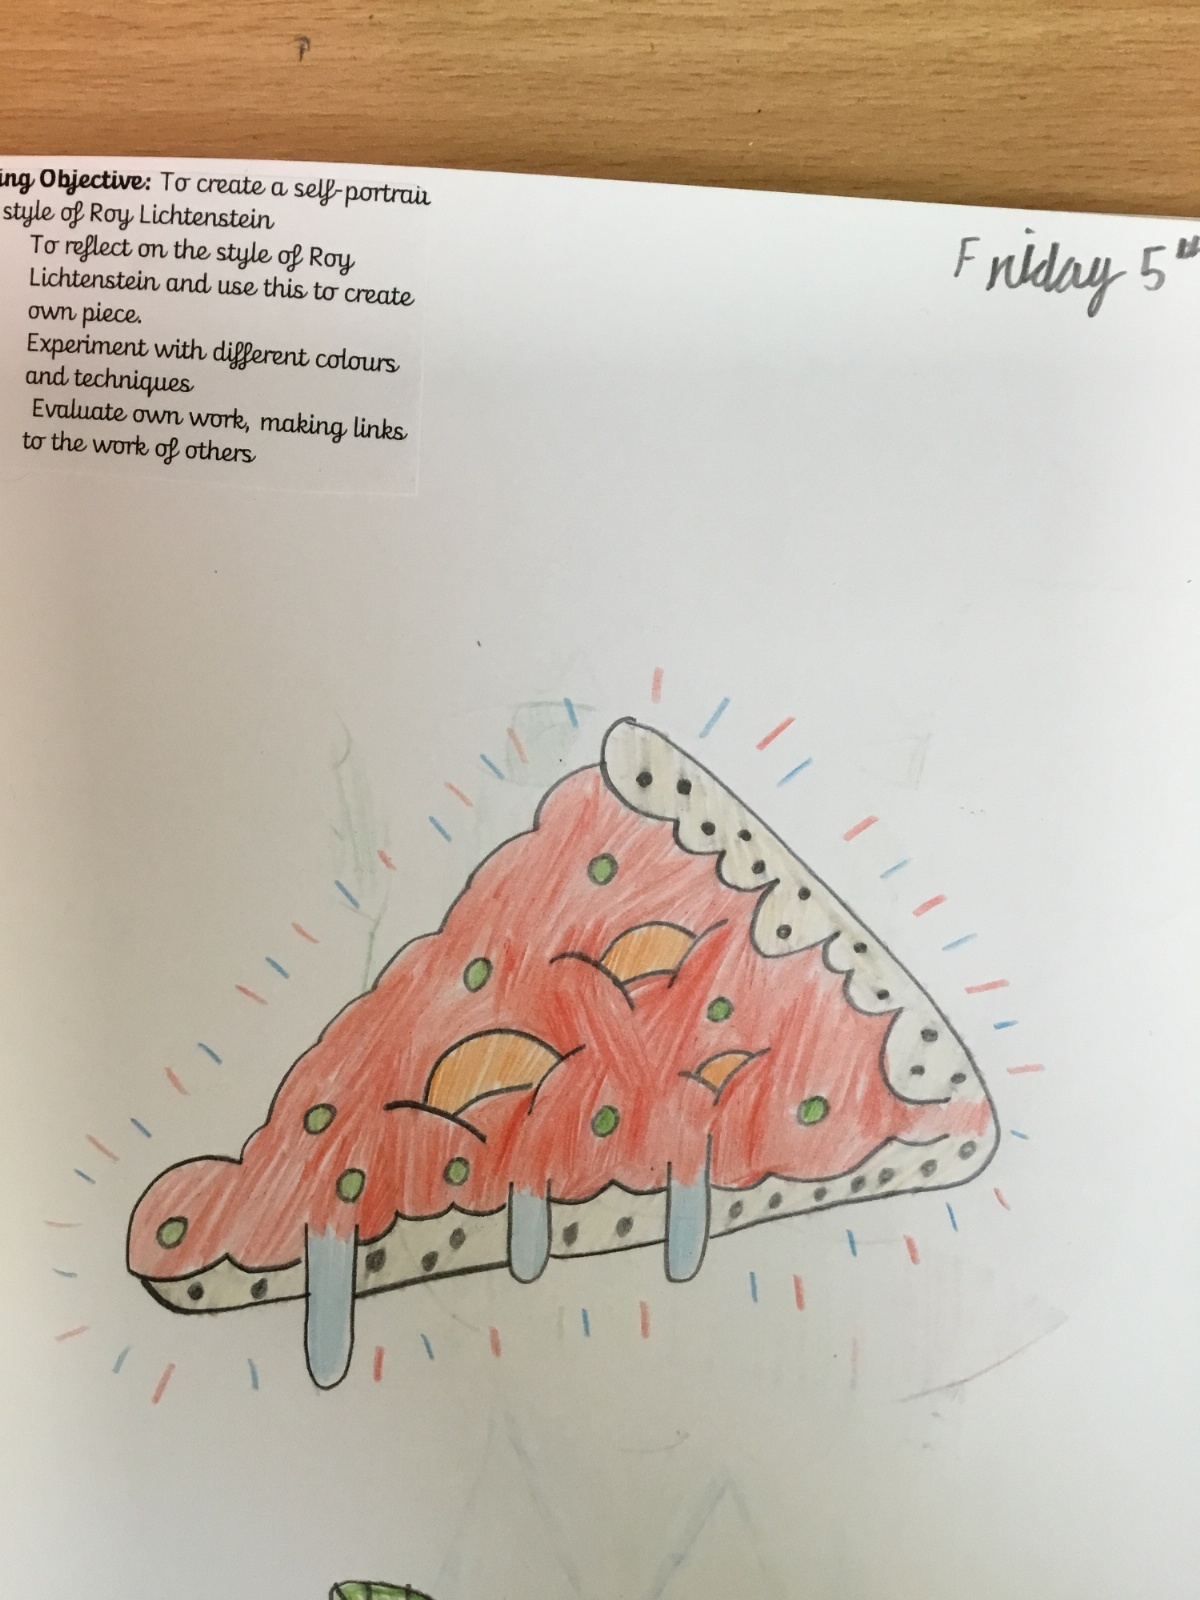 ing Objective: To create a self-portrait
style of Roy Lichtenstein
To reflect on the style of Roy
Lichtenstein and use this to create
own piece.
Experiment with different colours
and techniques
Evaluate own work, making links
to the work of others
Friday 5th